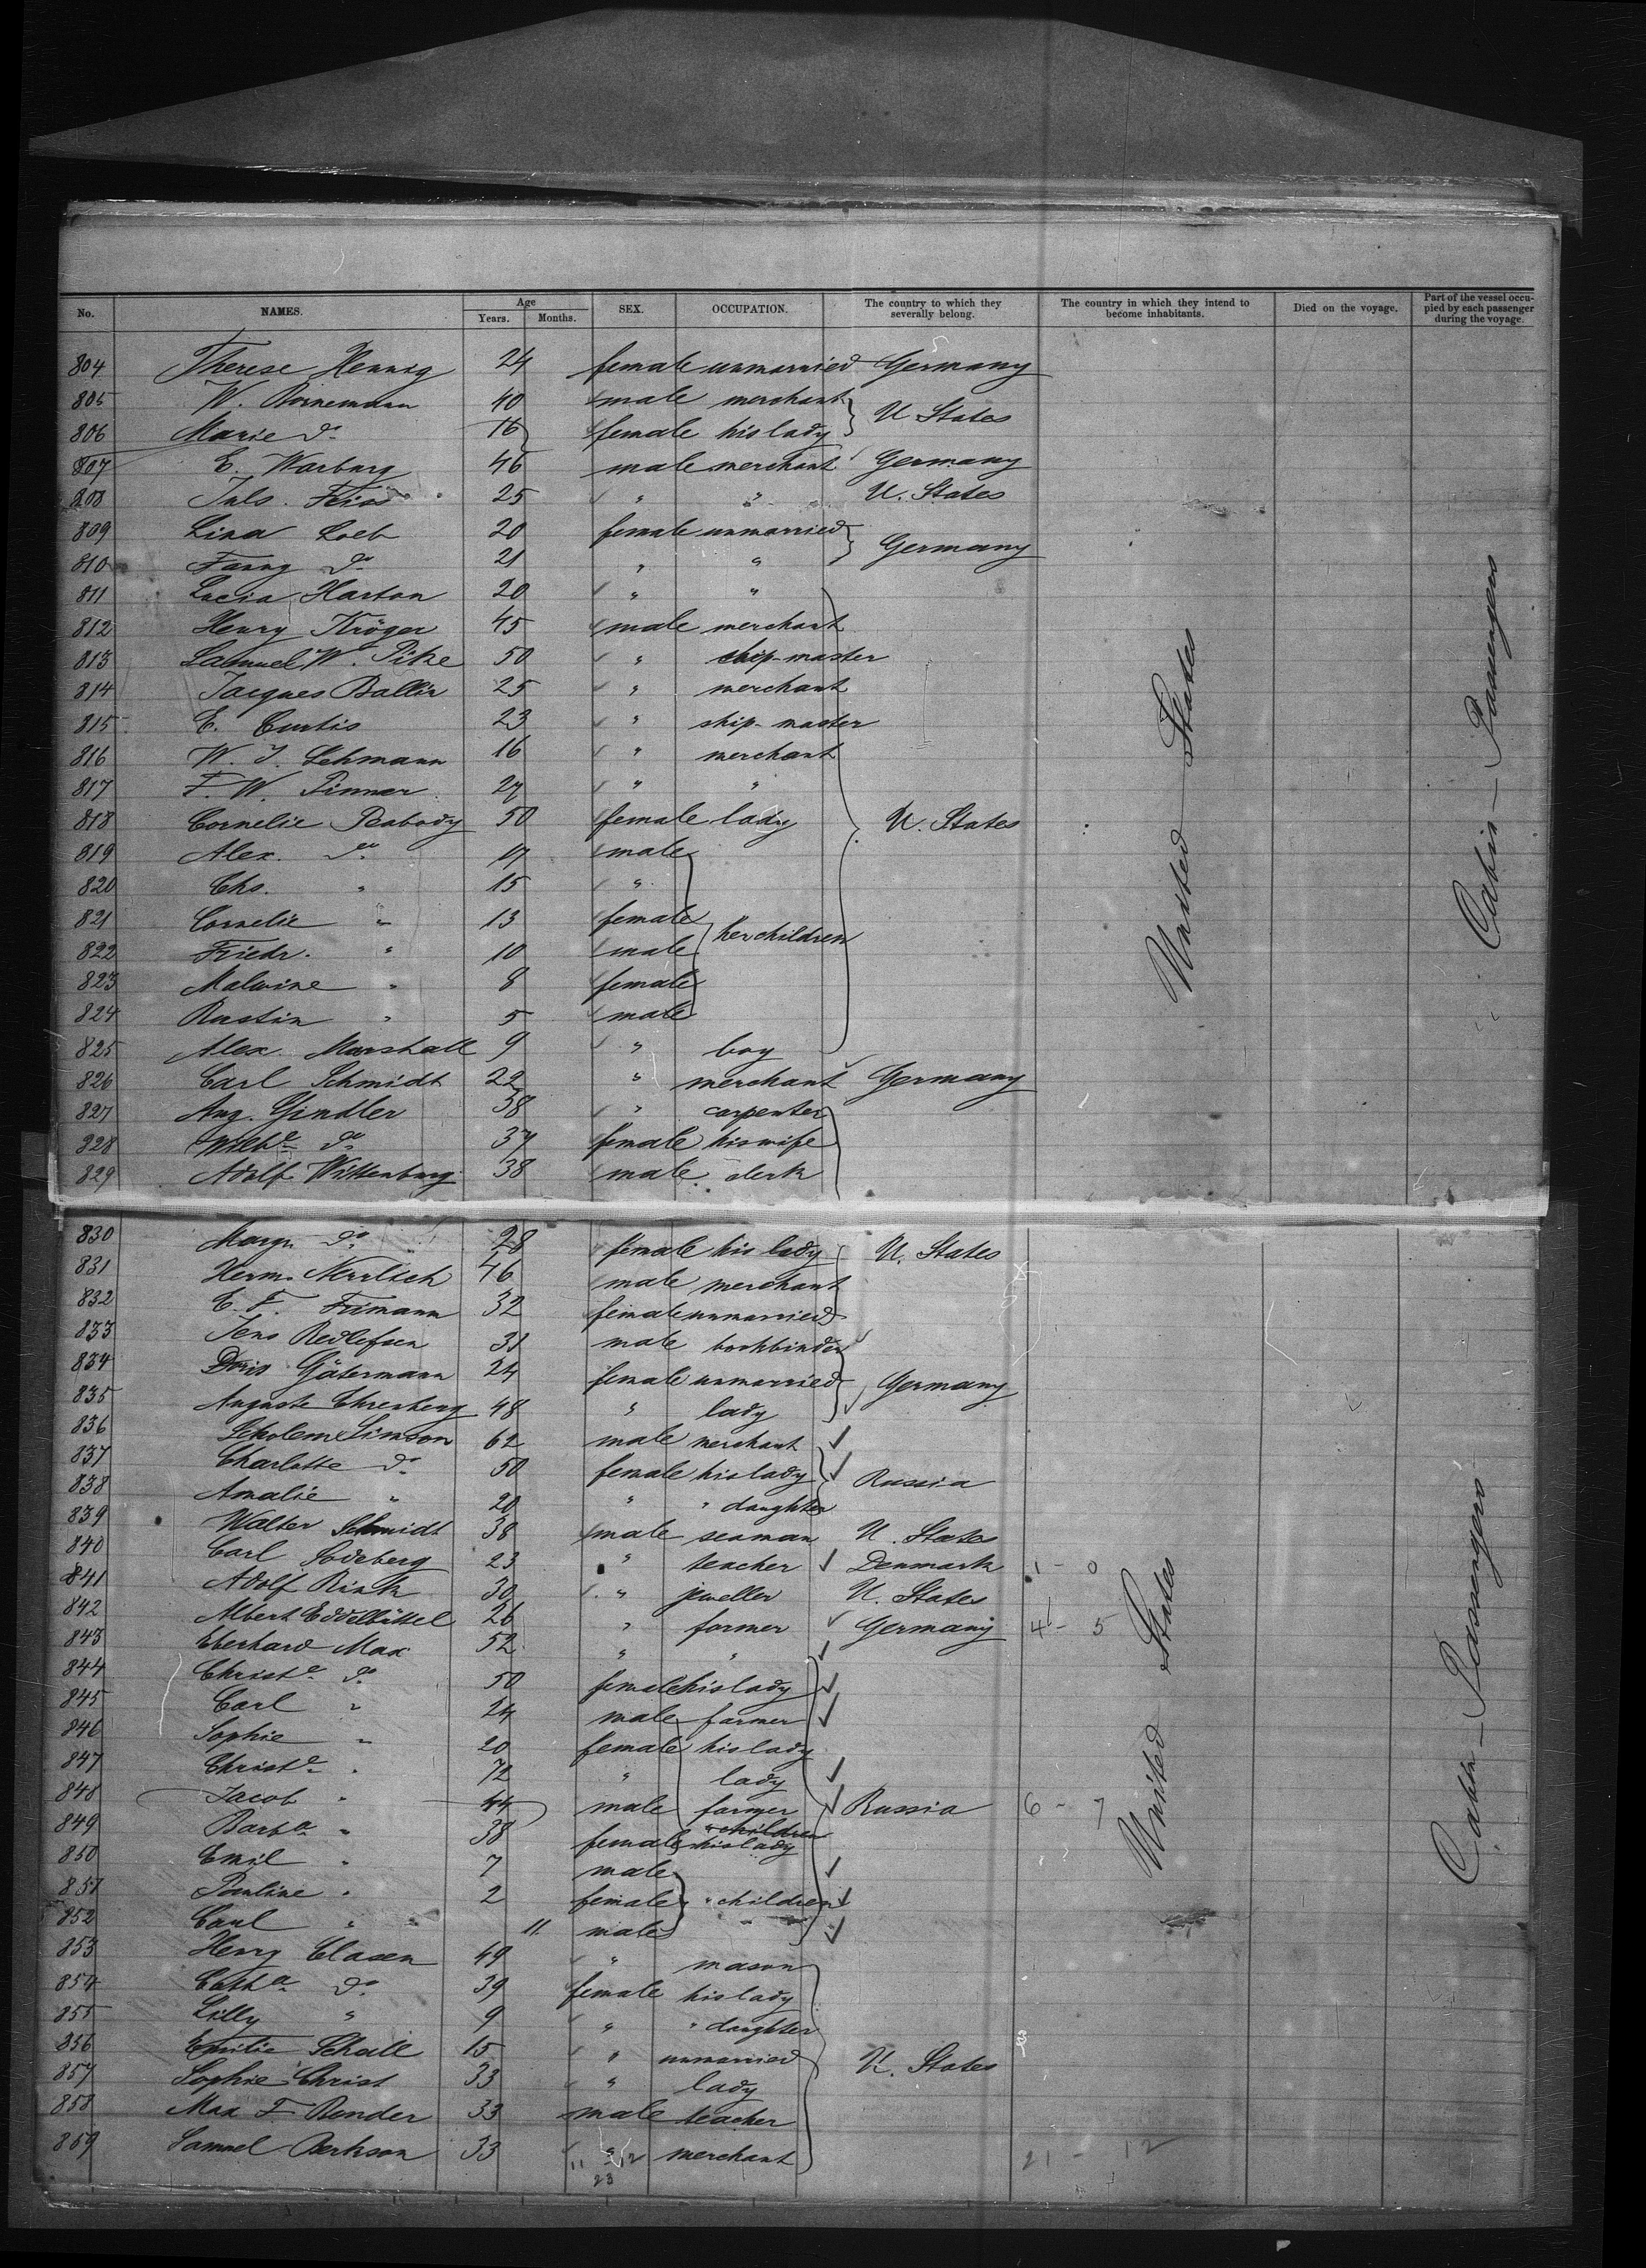 No. NAMES. Age Years. Months. SEX. OCCUPATION. The country to which they severally belong. The country in which they intend to become inhabitants. Died on the voyage. Part of the vessel occupied by each passenger during the voyage.
804 Therese Hennig 24 female unmarried Germany
805 W. Bornemann 40 male merchant
806 Marie do 16 female his lady U. States
807 E. Warburg 46 male merchant Germany
208 Juls. Feiss 25 " " U. States
809 Lina Loeb 20 female unmarried
810 Fanny do 21 " " Germany
811 Lucia Harton 20 " "
812 Henry Kröger 45 male merchant
813 Samuel W. Pike 50 " ship-master
814 Jacques Ballin 25 " merchant
815 E. Curtis 23 " ship-master
816 W. J. Lehmann 16 " merchant
817 F. W. Pinner 27 " "
818 Cornelie Peabody 50 female lady U. States
819 Alex. do 17 male
820 Chs. " 15 "
821 Cornelie " 13 female
822 Friedr. " 10 male her children
823 Malwine " 8 female
824 Rustin " 5 male
825 Alex. Marshall 9 " boy
826 Carl Schmidt 22 " merchant Germany
827 Aug. Gindler 38 " carpenter
828 Wilhe do 37 female his wife
829 Adolf Wittenburg 38 male clerk
United States
Cabin - Passengers
830 Margr. do 28 female his lady U. States
831 Herm. Nerrlich 46 male merchant
832 E. F. Frimann 32 female unmarried
833 Jens Redlefsen 31 male bookbinder
834 Doris Gätermann 24 female unmarried Germany
835 Auguste Ehrenberg 48 " lady
836 Scholem Simson 62 male merchant
837 Charlotte do 50 female his lady Russia
838 Amalie " 20 " " daughter
839 Walter Schmidt 38 male seaman U. States
840 Carl Sodeberg 23 " teacher Denmark 1 - 0
841 Adolf Rink 30 " jeweller U. States
842 Albert Eddelbüttel 26 " farmer Germany 4 - 5
843 Eberhard Max 52 " "
844 Christe do 50 female his lady
845 Carl " 24 male farmer
846 Sophie " 20 female his lady
847 Christe " 72 " lady
848 Jacob " 44 male farmer Russia 6 - 7
849 Barba " 38 female children his lady
850 Emil " 7 male
851 Pauline " 2 female " children
852 Carl " 11 male
853 Henry Clasen 49 " mason
854 Catha do 39 female his lady
855 Lilly " 9 " " daughter
856 Emilie Schall 15 " unmarried
857 Sophie Christ 33 " lady U. States
858 Max F. Render 33 male teacher
859 Samuel Berkson 33 " merchant
11 12
23
21 - 12
United States
Cabin - Passengers